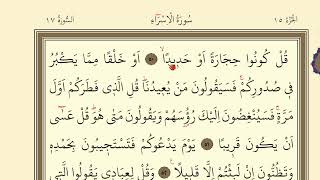 الجزء ١٥ سورة الإسراء السورة ١٧
قُلْ كُونُوا حِجَارَةً اَوْ حَدٖيدًاۙ ﴿٥٠﴾ اَوْ خَلْقًا مِمَّا يَكْبُرُ
فٖى صُدُورِكُمْۚ فَسَيَقُولُونَ مَنْ يُعٖيدُنَاۜ قُلِ الَّذٖى فَطَرَكُمْ اَوَّلَ
مَرَّةٍۚ فَسَيُنْغِضُونَ اِلَيْكَ رُؤُسَهُمْ وَيَقُولُونَ مَتٰى هُوَۜ قُلْ عَسٰٓى
اَنْ يَكُونَ قَرٖيبًا ﴿٥١﴾ يَوْمَ يَدْعُوكُمْ فَتَسْتَجٖيبُونَ بِحَمْدِهٖ
وَتَظُنُّونَ اِنْ لَبِثْتُمْ اِلَّا قَلٖيلًا۟ ﴿٥٢﴾ وَقُلْ لِعِبَادٖى يَقُولُوا الَّتٖى